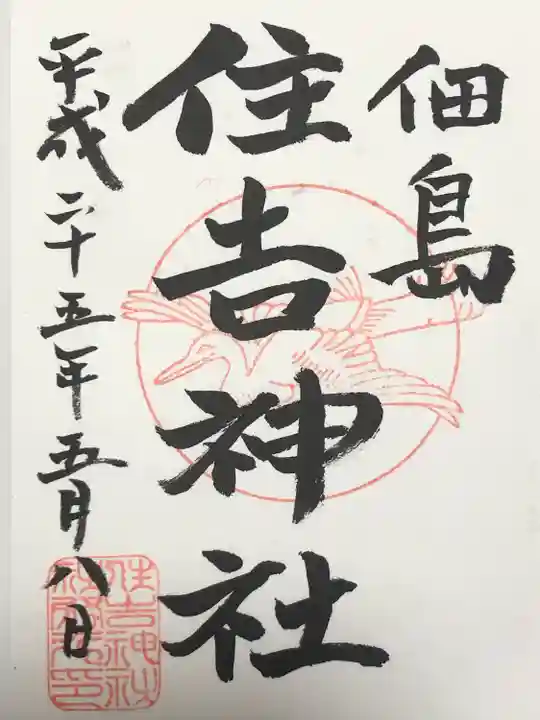 佃島
住吉神社
平成二十五年五月八日
住吉神社